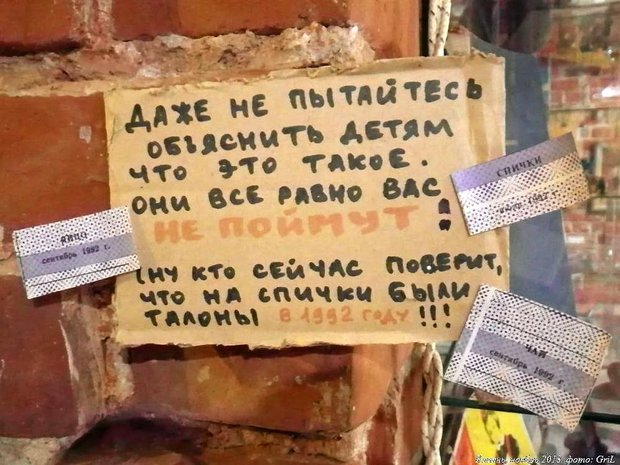 ДАЖЕ НЕ ПЫТАЙТЕСЬ
ОБЪЯСНИТЬ ДЕТЯМ
ЧТО ЭТО ТАКОЕ.
ОНИ ВСЕ РАВНО ВАС
НЕ ПОЙМУТ!
(НУ КТО СЕЙЧАС ПОВЕРИТ,
ЧТО НА СПИЧКИ БЫЛИ
ТАЛОНЫ В 1992 ГОДУ!!!
ЯЙЦО
сентябрь 1992 г.
СПИЧКИ
1992 г.
ЧАЙ
сентябрь 1992 г.
ноябрь 2018. фото: GriL